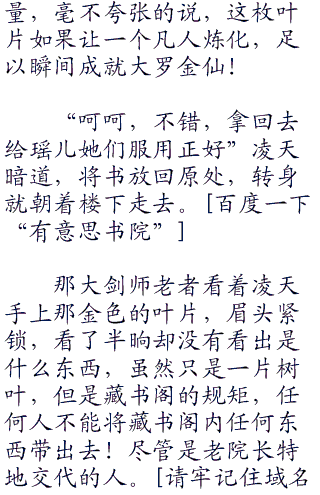 量，毫不夸张的说，这枚叶
片如果让一个凡人炼化，足
以瞬间成就大罗金仙！
“呵呵，不错，拿回去
给瑶儿她们服用正好”凌天
暗道，将书放回原处，转身
就朝着楼下走去。[百度一下
“有意思书院”]
那大剑师老者看着凌天
手上那金色的叶片，眉头紧
锁，看了半晌却没有看出是
什么东西，虽然只是一片树
叶，但是藏书阁的规矩，任
何人不能将藏书阁内任何东
西带出去！尽管是老院长特
地交代的人。[请牢记住域名